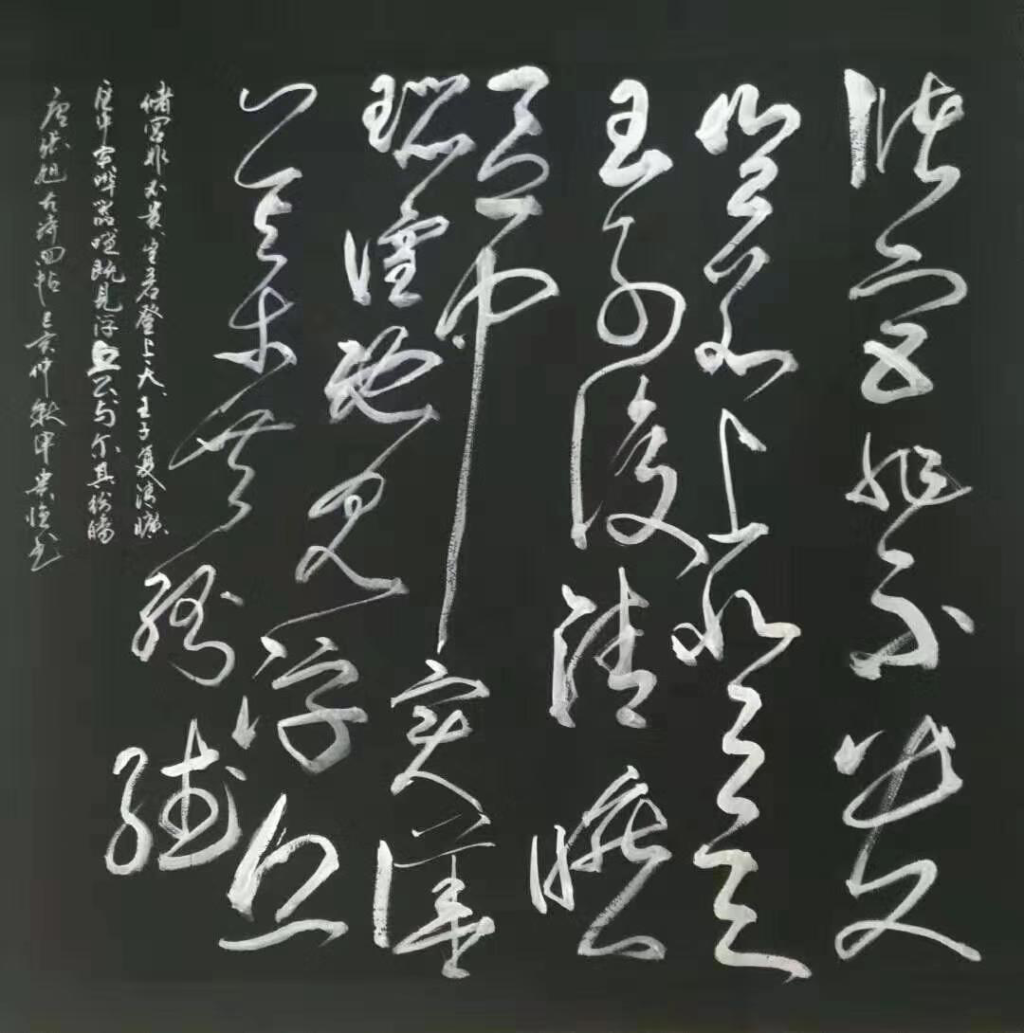 储宫非不贵
岂若上登天
王子复清旷
区中实哗
嚣喧既见浮丘
公与尔共纷繙
储宫非不贵岂若登上天王子复清旷
区中实哗嚣喧既见浮丘公与尔其纷繙
唐张旭古诗四帖己亥仲秋书